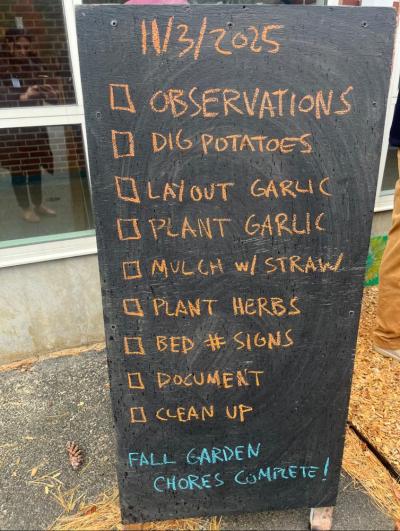 11/3/2025
☐ OBSERVATIONS
☐ DIG POTATOES
☐ LAYOUT GARLIC
☐ PLANT GARLIC
☐ MULCH W/ STRAW
☐ PLANT HERBS
☐ BED # SIGNS
☐ DOCUMENT
☐ CLEAN UP
FALL GARDEN
CHORES COMPLETE!